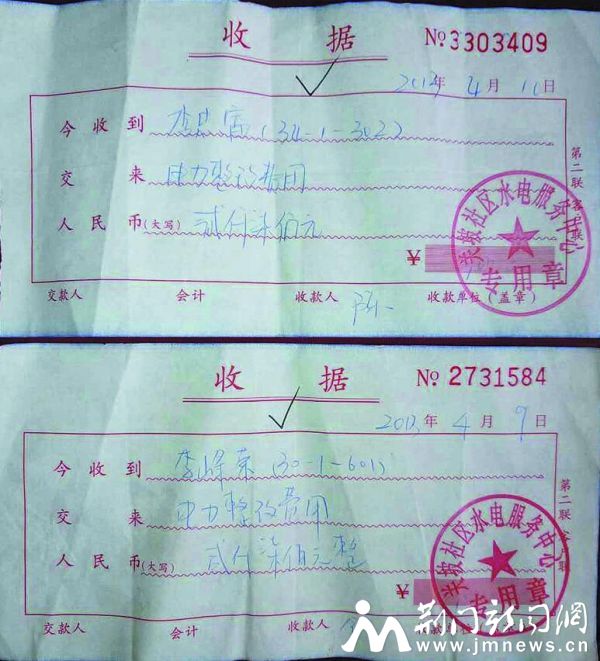 收 据 № 3303409
2013年 4月 10日
今收到 (34-1-302)
交来 电力整改费用
人民币(大写) 贰仟柒佰元
¥
第二联
关坡社区水电服务中心
专用章
交款人 会计 收款人 收款单位(盖章)
收 据 № 2731584
2013年 4月 9日
今收到 李峰荣(30-1-601)
交来 电力整改费用
人民币(大写) 贰仟柒佰元整
¥
第二联
社区水电服务中心
专用章
交款人 会计 收款人 收款单
荆门新闻网
www.jmnews.cn